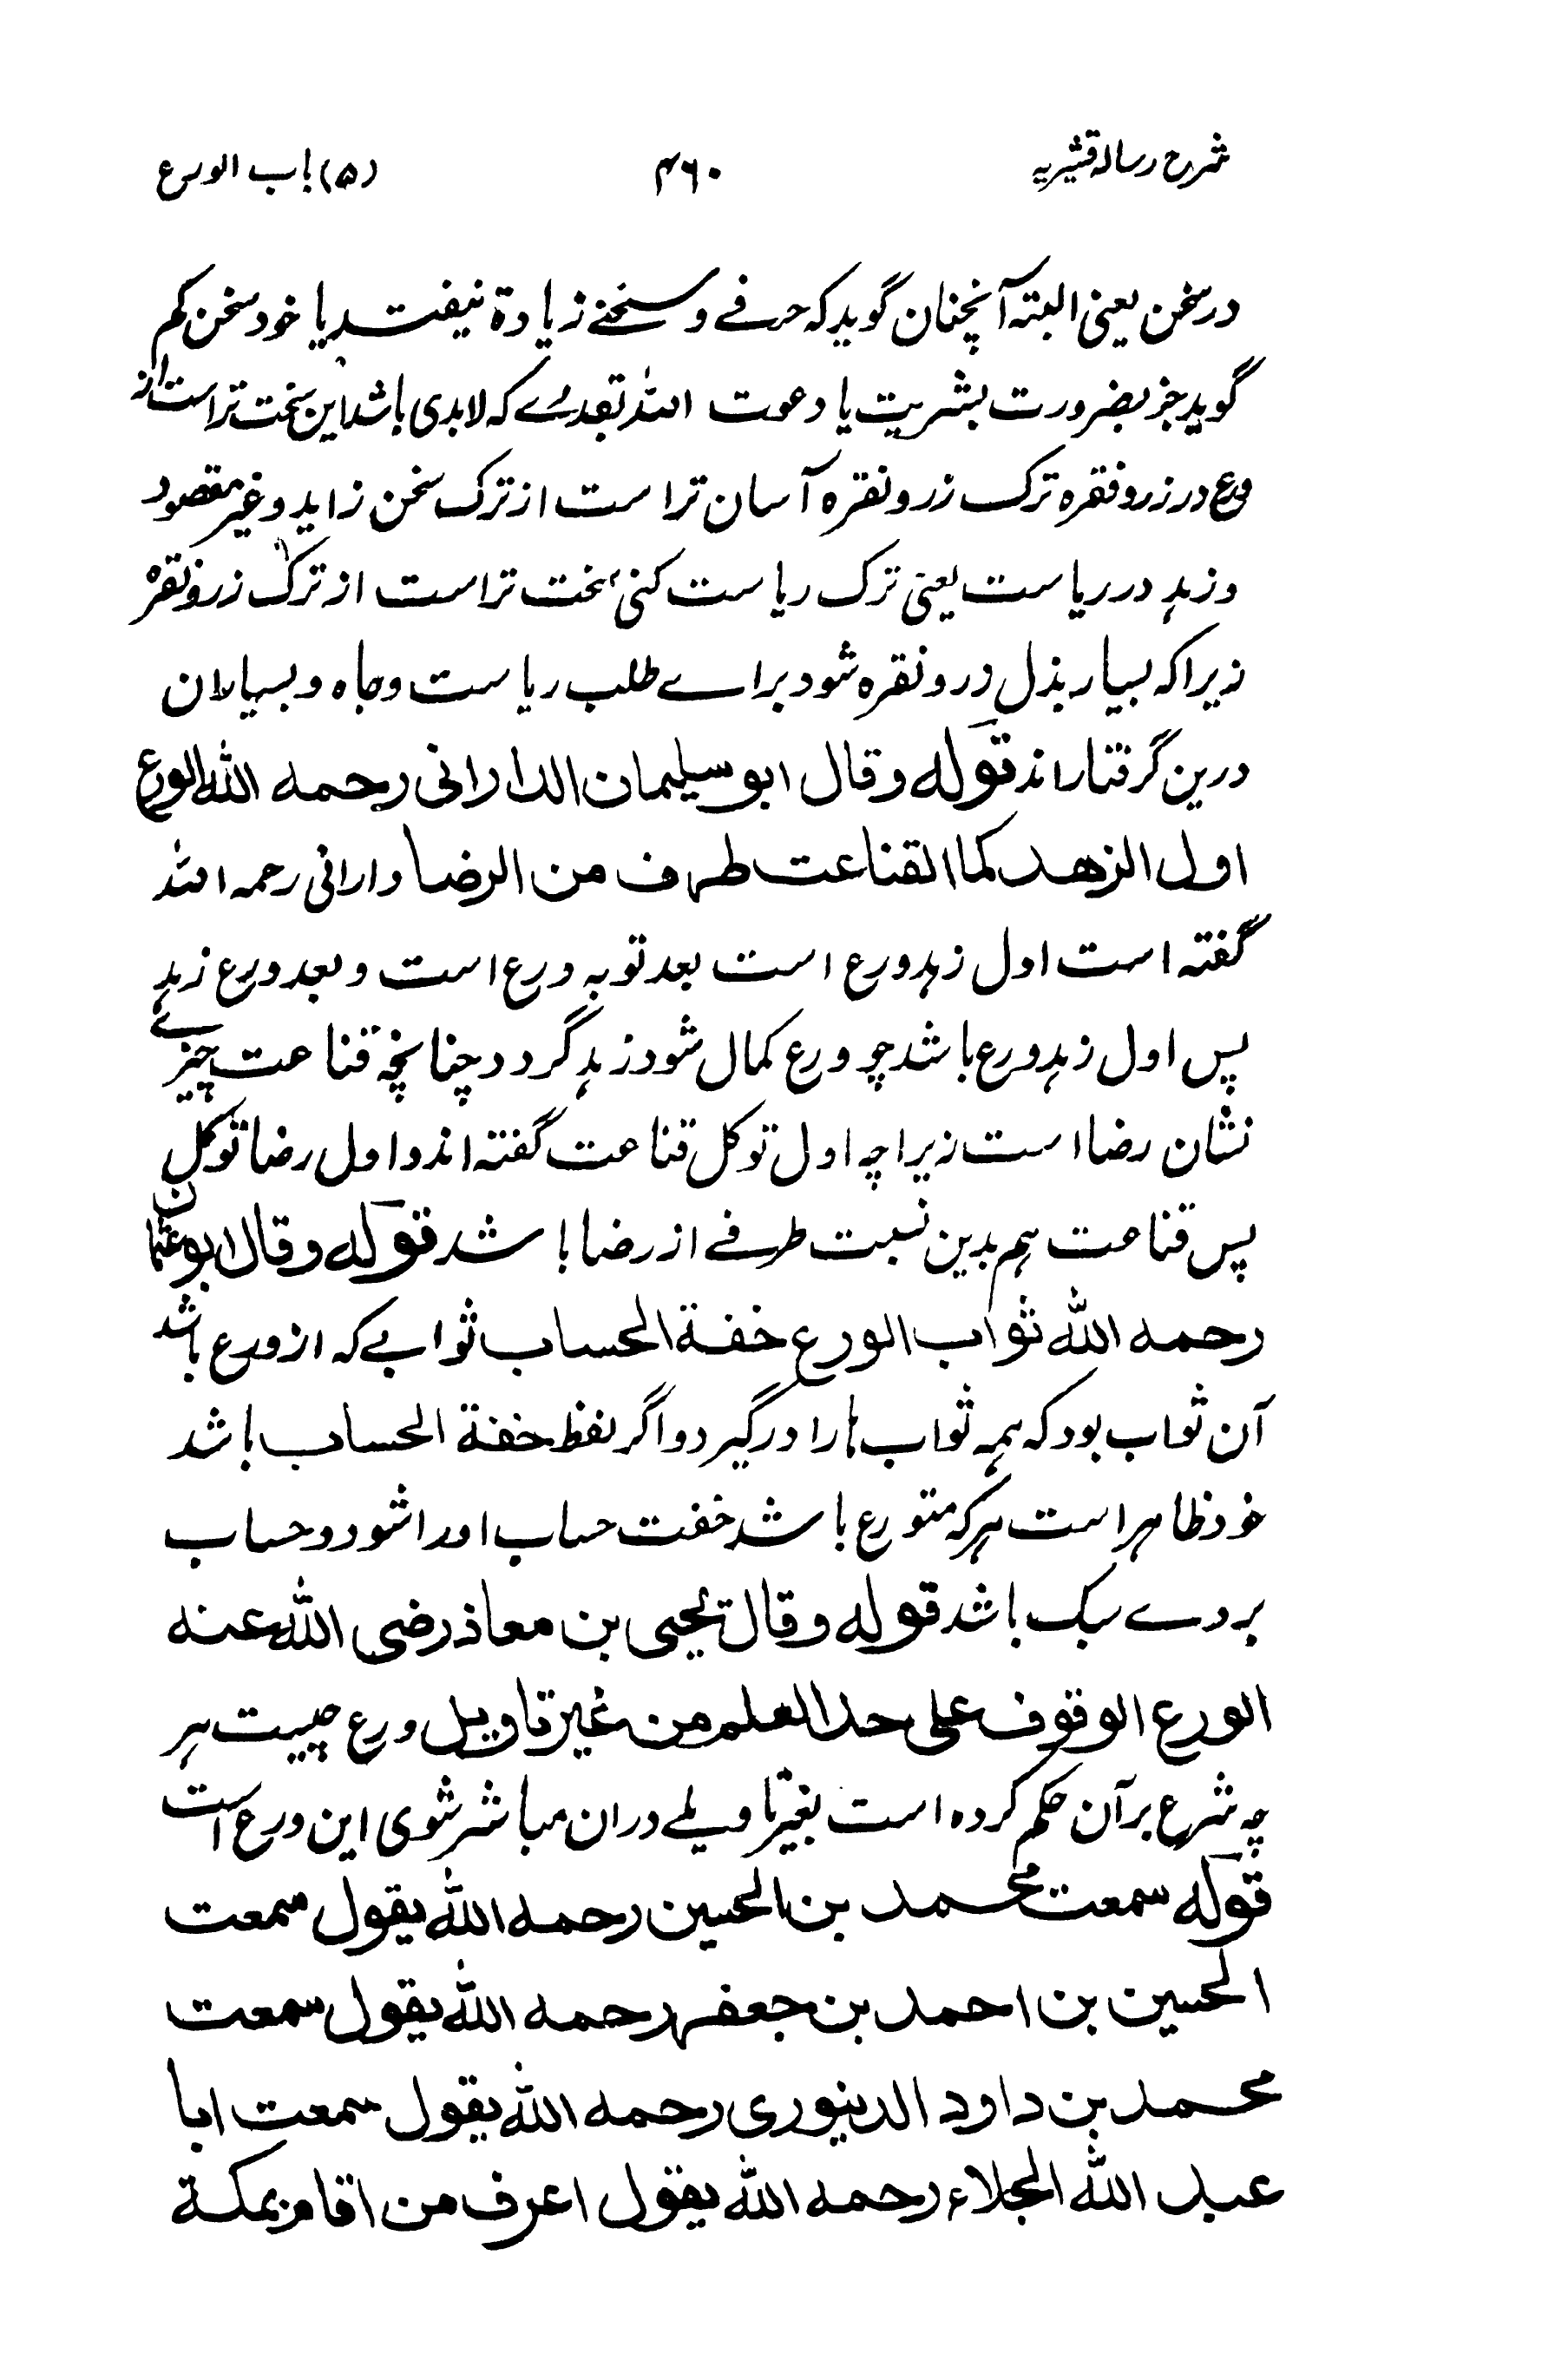 شرح رساله قشیریه
۴۶۰
(۵) باب الورع
در سخن یعنی البته آنچنان گوید که حرفے و سخنے زیادة نیفتد یا خود سخن کم
گوید جز بضرورت بشریت یا دعوت الله بقدرے که لابدی باشد این سخت تر است از
ورع در زر و نقره ترک زر و نقره آسان تر است از ترک سخن زاید و غیر مقصود
و زهد در ریاست یعنی ترک ریاست کنی سخت تر است از ترک زر و نقره
زیرا که بسیار بذل زر و نقره شود براے طلب ریاست و جاه و بسیاران
درین گرفتار اند قوله وقال ابو سلیمان الدارانی رحمه الله الورع
اول الزهد کما القناعت طرف من الرضا دارانی رحمه الله
گفته است اول زهد ورع است بعد توبه ورع است و بعد ورع زهد
پس اول زهد ورع باشد چو ورع کمال شود زهد گردد چنانچه قناعت چیزے
نشان رضا است زیراچه اول توکل قناعت گفته اند و اول رضا توکل
پس قناعت هم بدین نسبت طرفے از رضا باشد قوله وقال ابو عثمان
رحمه الله ثواب الورع خفة الحساب ثوابے که از ورع باشد
آن ثواب بود که همه ثواب ها را در گیرد و اگر لفظ خفة الحساب باشد
خود ظاهر است هر که متورع باشد خفت حساب او را شود و حساب
بر وے سبک باشد قوله وقال یحیی بن معاذ رضی الله عنه
الورع الوقوف علی حد العلم من غیر تاویل ورع چیست هر
چه شرع بر آن حکم کرده است بغیر تاویلے دران مباشر شوی این ورع است
قوله سمعت محمد بن الحسین رحمه الله یقول سمعت
الحسین بن احمد بن جعفر رحمه الله یقول سمعت
محمد بن داود الدینوری رحمه الله یقول سمعت ابا
عبد الله الجلاء رحمه الله یقول اعرف من اقام بمکة